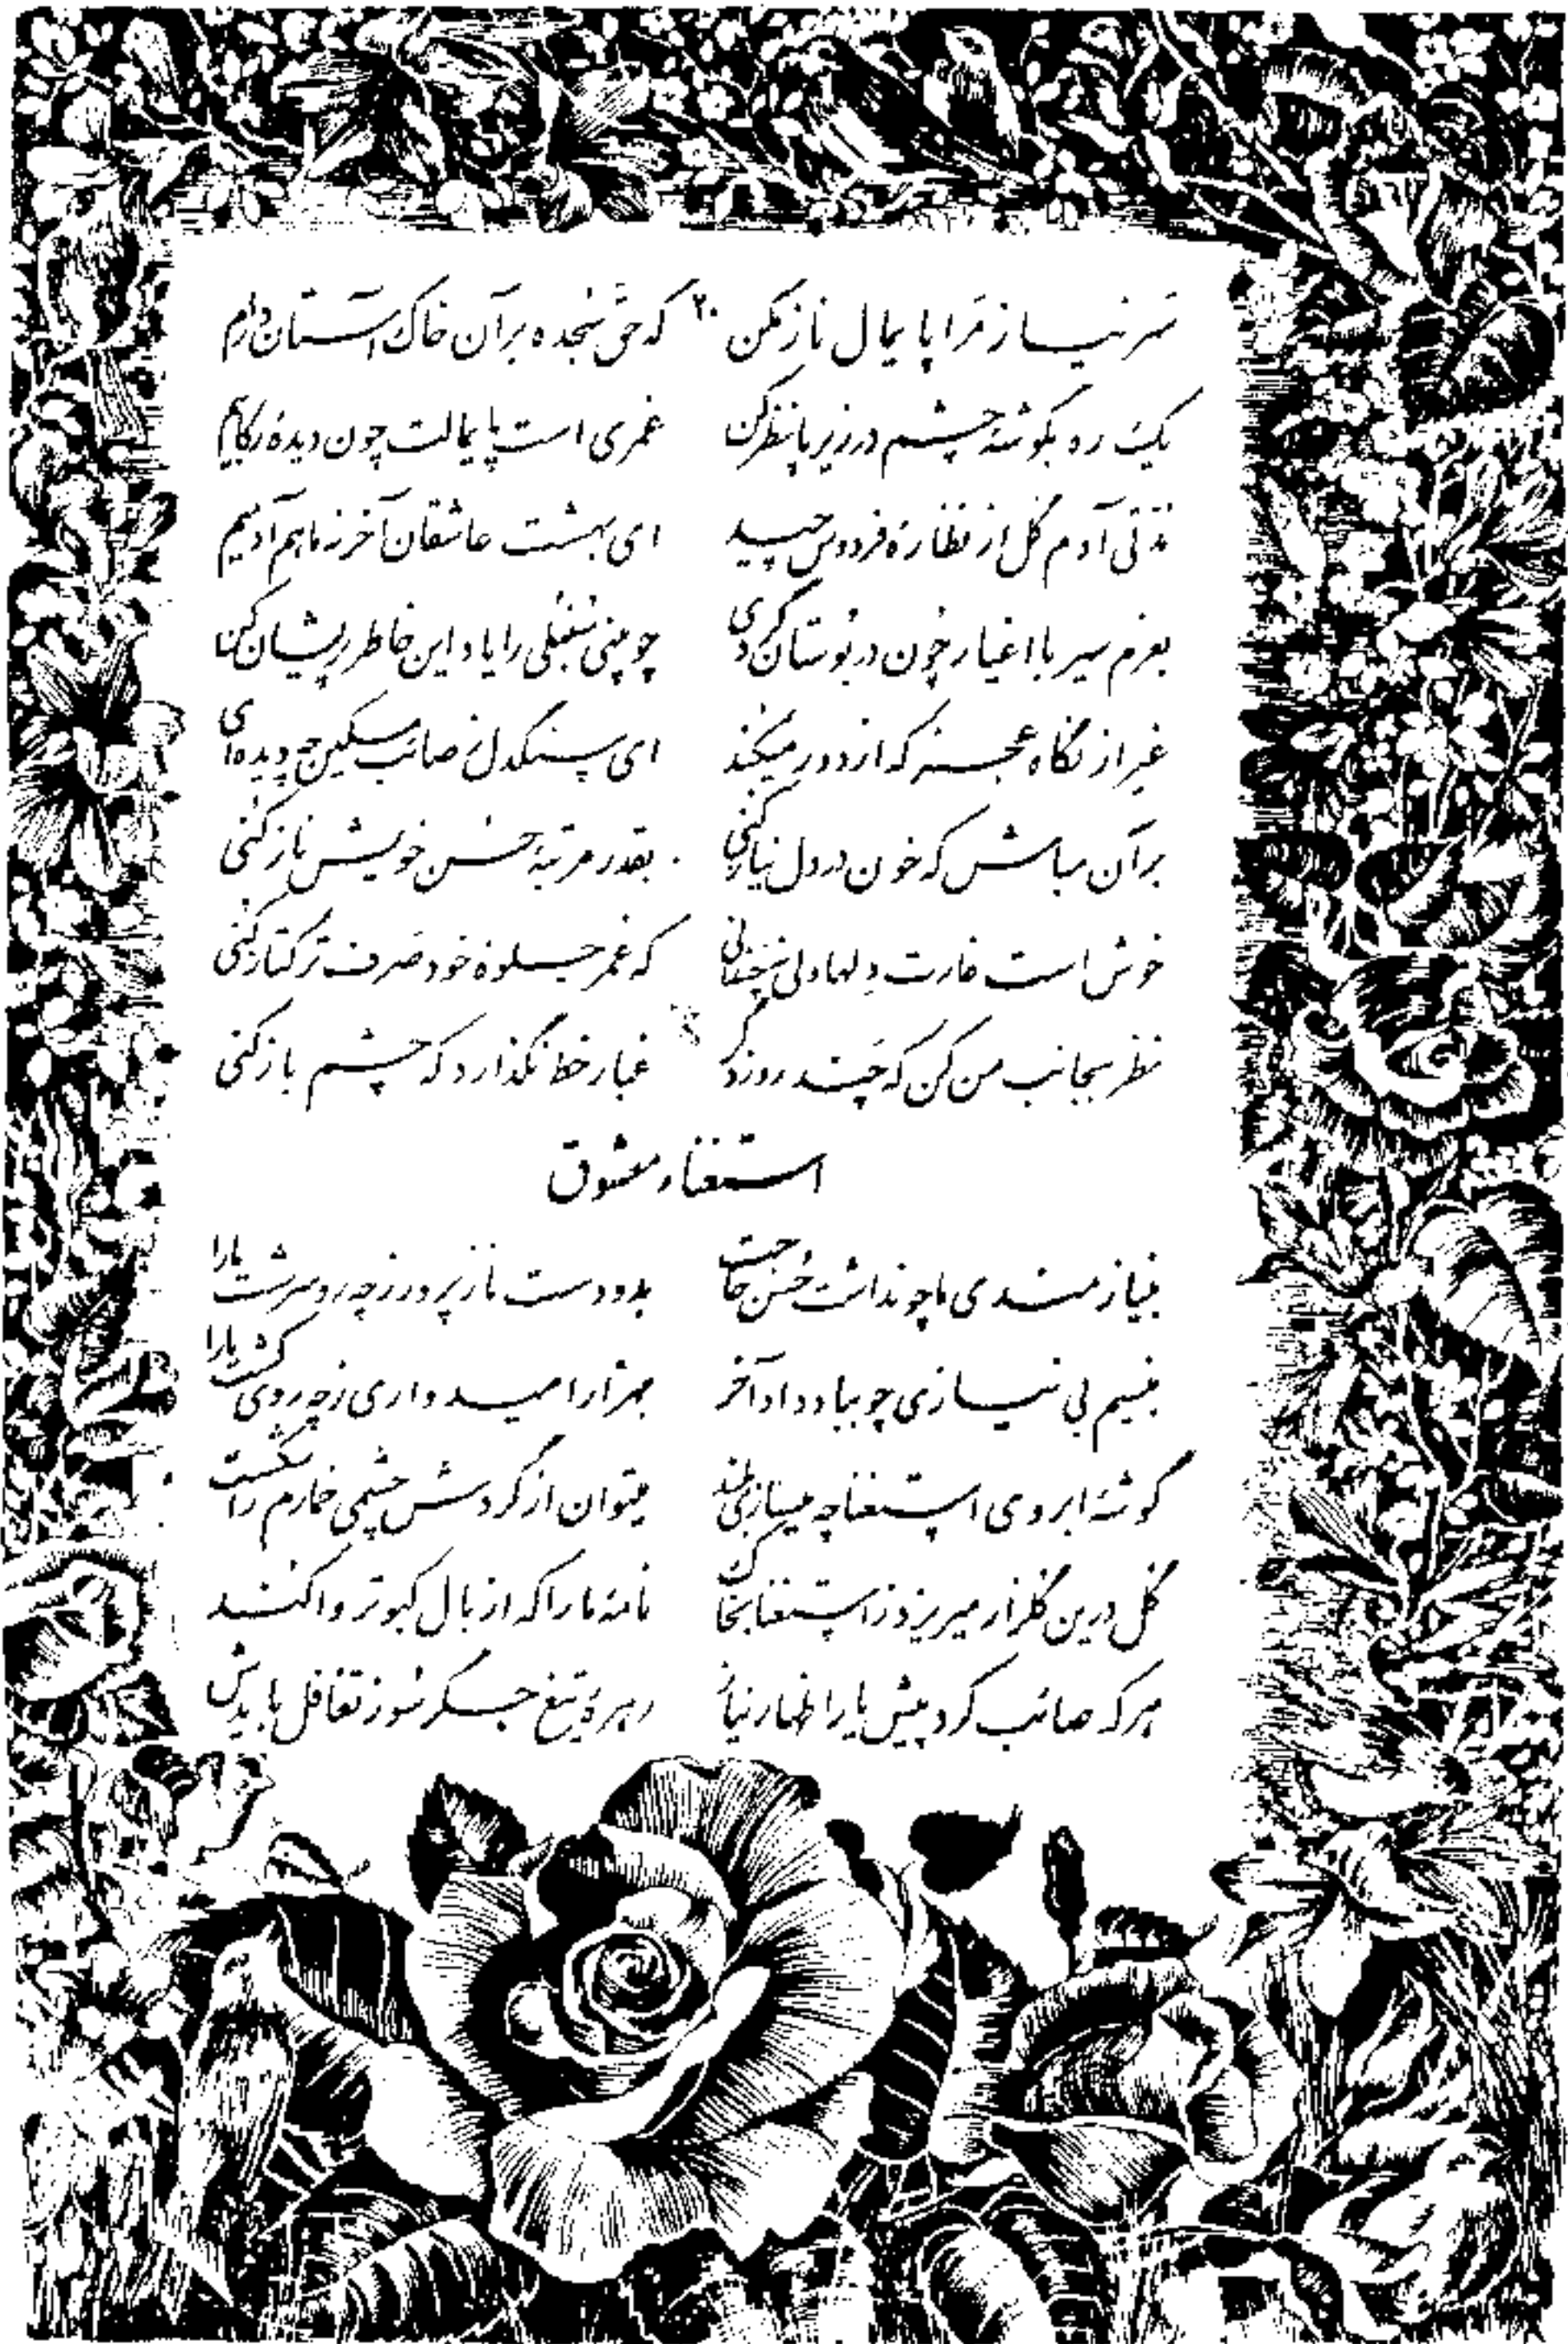 سر نیاز مرا پایمال ناز مکن ۲۰ که حق سجده بر آن خاک آستان دارم
یک ره بگوشهٔ چشم در زیر پا نظر کن عمری است پایمالت چون دیدهٔ رکابیم
مدتی آدم گل از نظارهٔ فردوس چید ای بهشت عاشقان آخر نه ما هم آدمیم
بعزم سیر با اغیار چون در بوستان گردی چو بینی سنبلی را یاد این خاطر پریشان کن
غیر از نگاه عجز که از دور میکند ای سنگدل ز صائب مسکین چه دیده‌ای
بر آن مباش که خون در دل نیاز کنی بقدر مرتبهٔ حسن خویش ناز کنی
خوش است غارت دلها ولی نچندانی که عمر جلوهٔ خود صرف ترکتاز کنی
نظر بجانب من کن که چند روز دگر غبار خط نگذارد که چشم باز کنی
استغناء معشوق
بنیازمندی ما چو نداشت حسن حاجت بدو دست ناز پرور ز چه رو سرشت ما را
بنسیم بی نیازی چو بباد داد آخر بهزار امیدواری ز چه روی کشت ما را
گوشهٔ ابروی استغنا چه میسازی بلند میتوان از گردش چشمی خمارم را شکست
گل درین گلزار میریزد ز استغنا بخاک نامهٔ ما را که از بال کبوتر وا کند
هر که صائب کرد پیش یار اظهار نیاز زهرهٔ تیغ جگر سوز تغافل بایدش